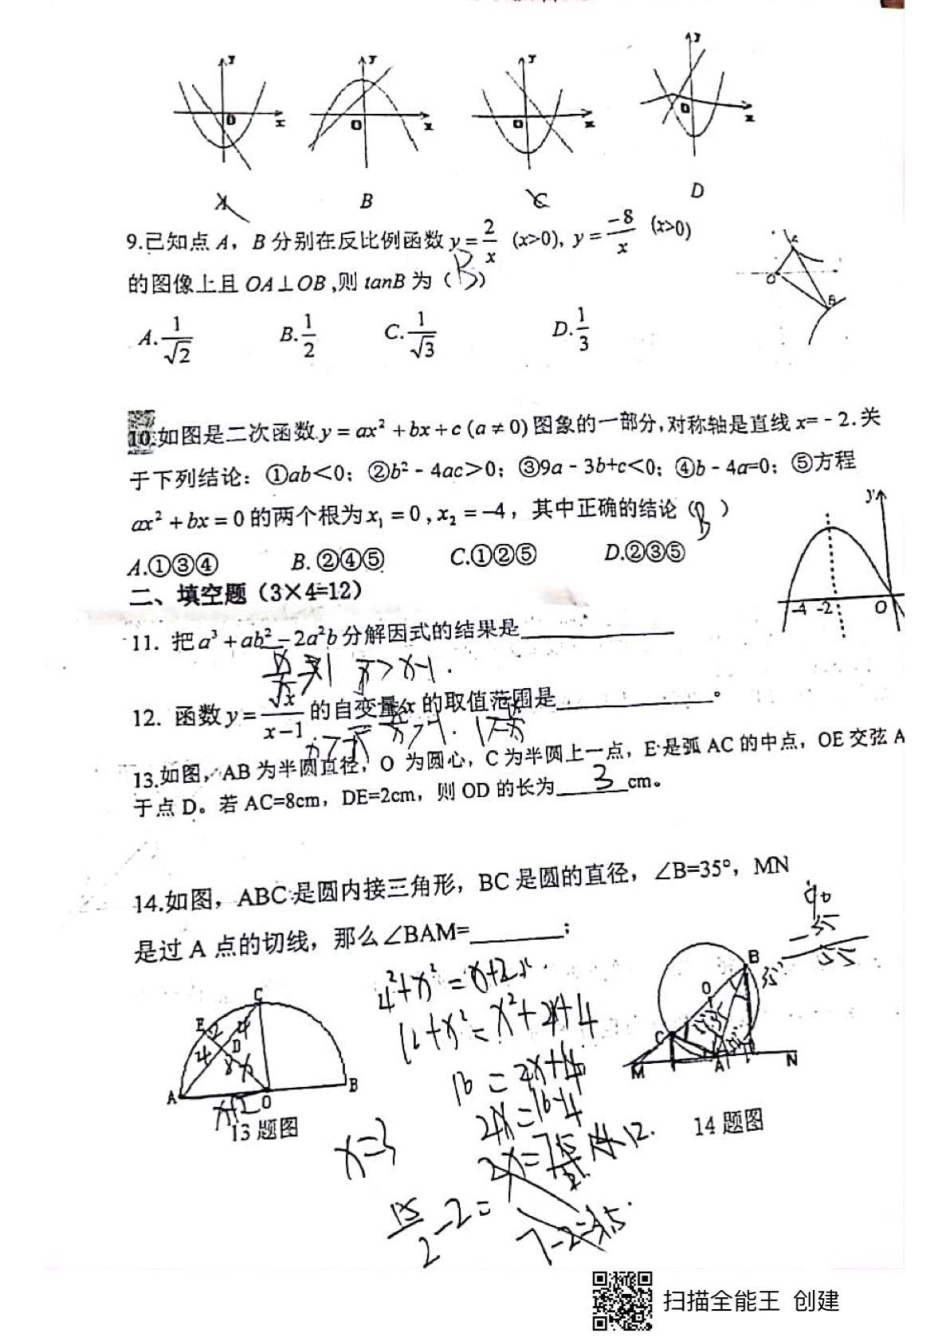 y y y y
O x O x O x O x
A B C D
9.已知点 A，B 分别在反比例函数 y=2/x (x>0), y=-8/x (x>0)
的图像上且 OA⊥OB,则 tanB 为（B）
A. 1/√2 B. 1/2 C. 1/√3 D. 1/3
A
O
B
10.如图是二次函数 y=ax²+bx+c (a≠0)图象的一部分,对称轴是直线 x=-2.关
于下列结论：①ab<0；②b²-4ac>0；③9a-3b+c<0；④b-4a=0；⑤方程
ax²+bx=0 的两个根为 x₁=0,x₂=-4，其中正确的结论（B）
A.①③④ B. ②④⑤ C.①②⑤ D.②③⑤
y
-4 -2 O
二、填空题（3×4=12）
11. 把 a³+ab²-2a²b 分解因式的结果是
x>x-1.
12. 函数 y=√x/x-1 的自变量 x 的取值范围是 。
13.如图，AB 为半圆直径，O 为圆心，C 为半圆上一点，E 是弧 AC 的中点，OE 交弦 A
于点 D。若 AC=8cm，DE=2cm，则 OD 的长为 3 cm。
14.如图，ABC 是圆内接三角形，BC 是圆的直径，∠B=35°，MN
是过 A 点的切线，那么∠BAM= ；
90
-35
55
4²+x²=x+2
16+x²=x²+2x+4
16=2x+4
2x=16-4
x=3
15/2-2=
C
E 2 4
4 D
A O B
x+2
13 题图
B 35°
O
C
M A N
14 题图
扫描全能王 创建